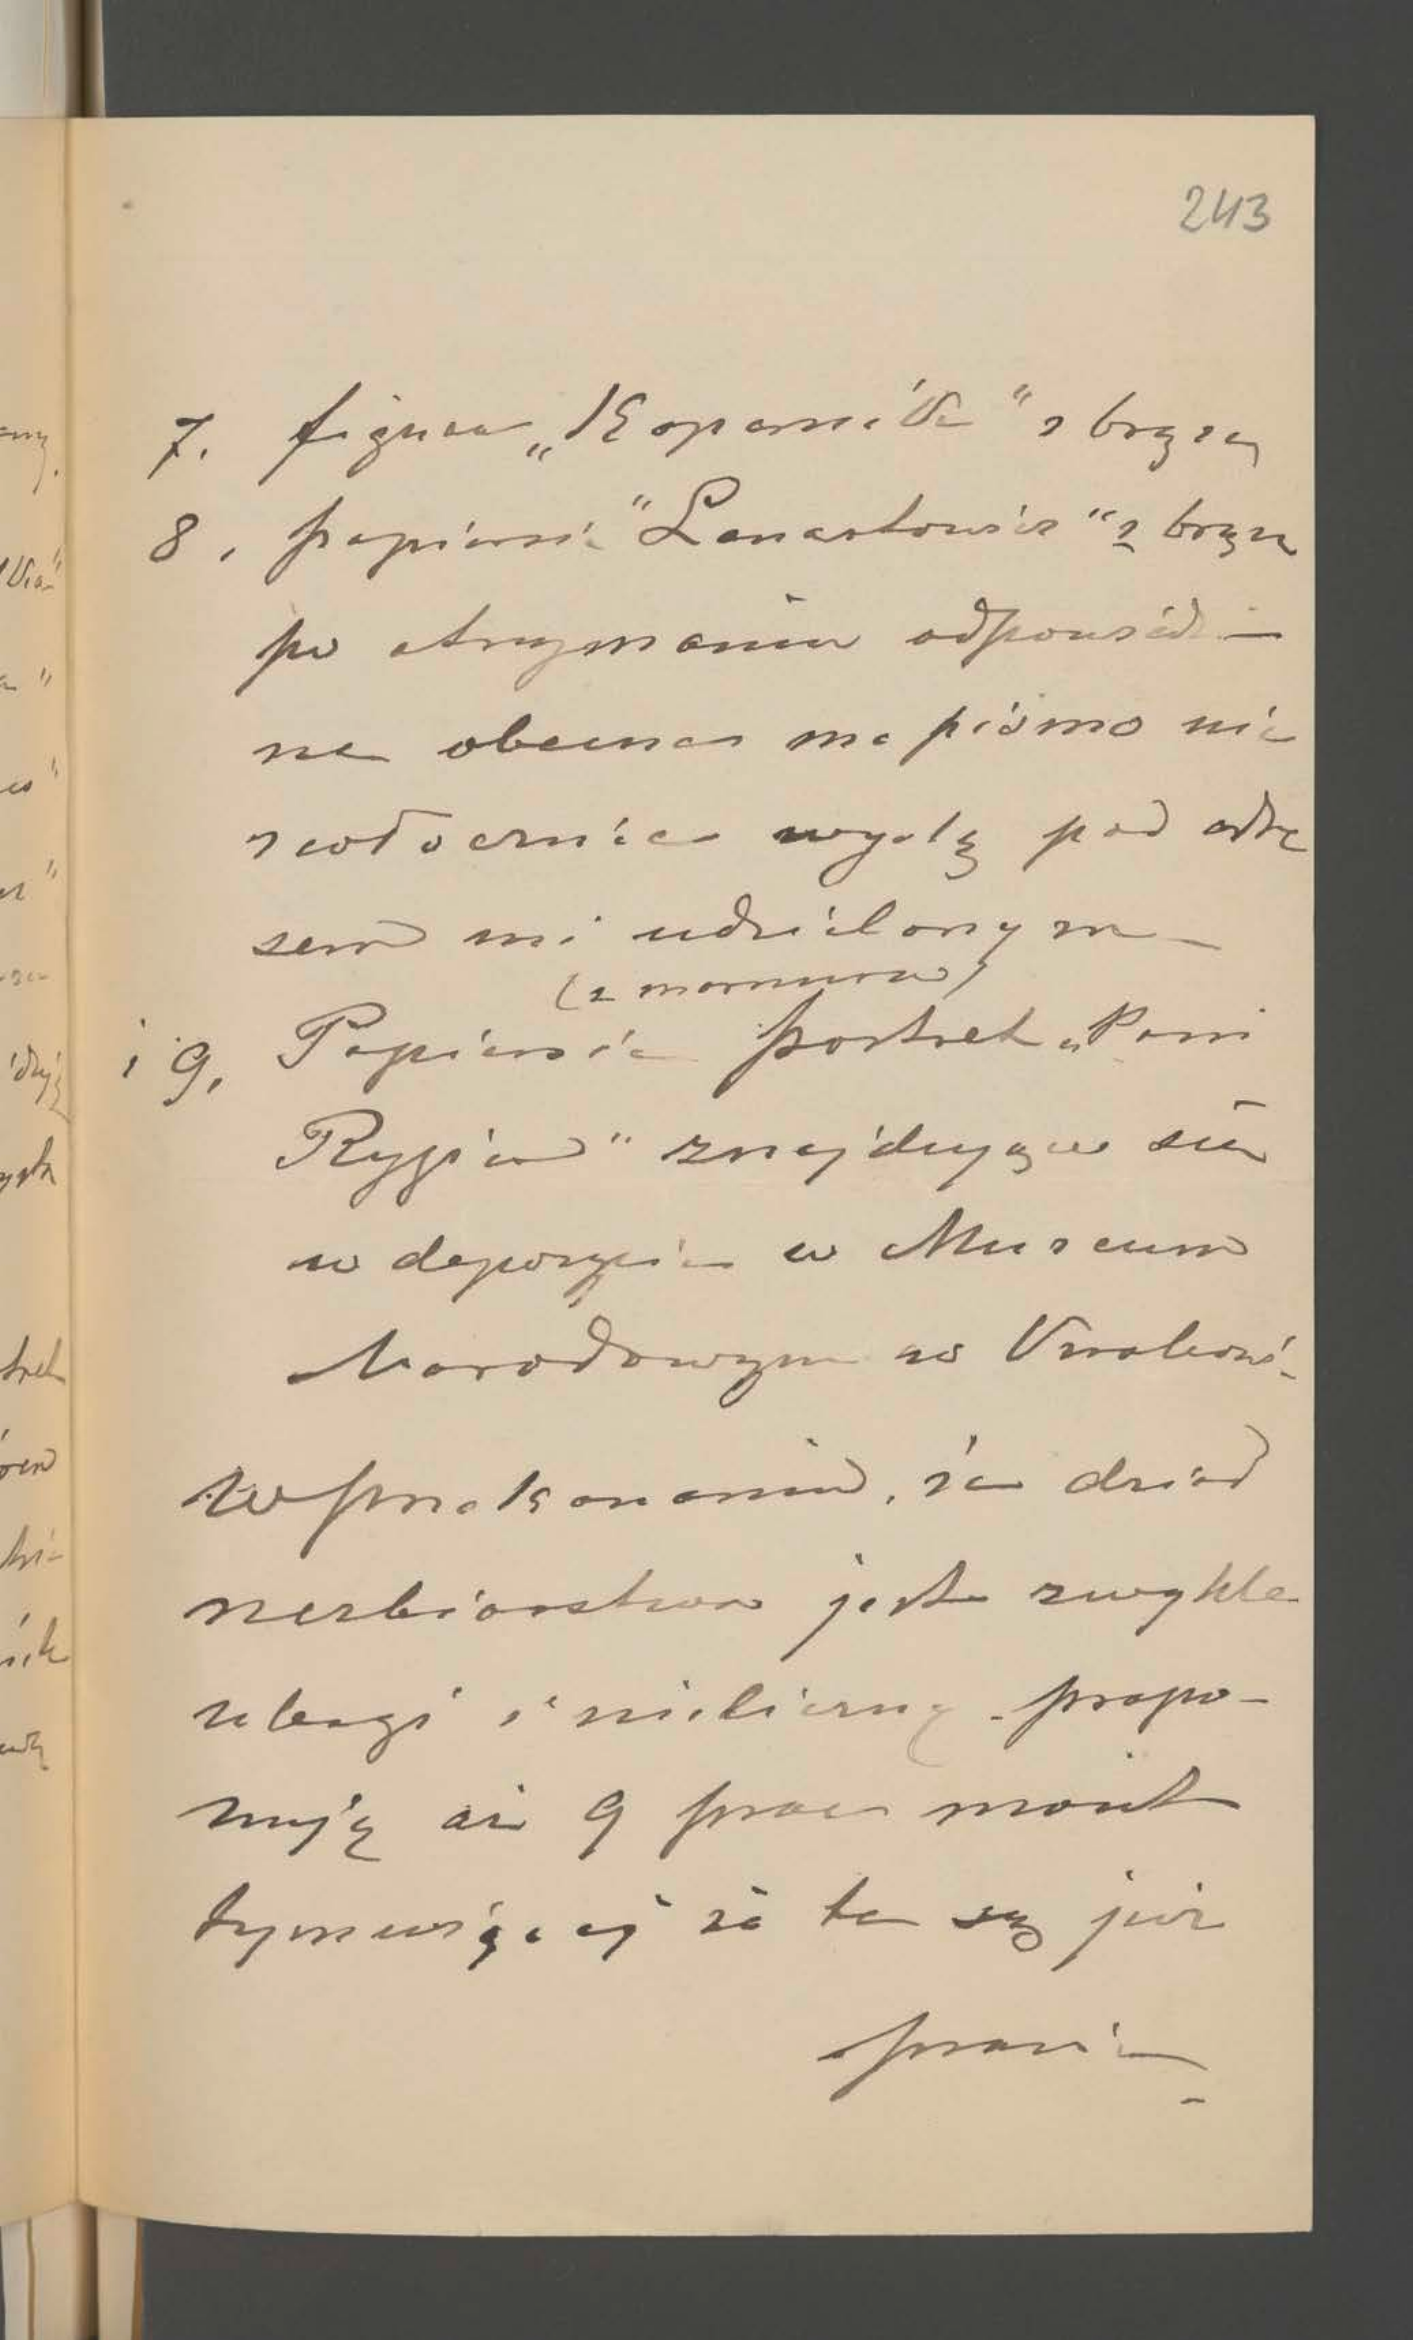 243
7. figura „Kopernika" z brązu
8. popiersie "Lenartowicz" z brązu
po otrzymaniu odpowiedzi
na obecne me pismo nie
zwłocznie wyślę pod adre
sem mi udzielonym
(z marmuru)
i 9. Popiersie portret „Pani
Rygier" znajdujące się
w depozycie w Museum
Narodowym w Krakowie
W przekonaniu, że dział
rzeźbiarstwa jest zwykle
ubogi i nieliczny propo-
nuję aż 9 prac
tymwięcej że te są już
prawie